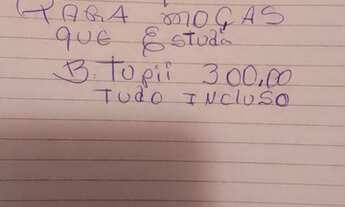 PARA MOÇAS
QUE EStuda
B. Tupii 300,00
TUDO INCLUSO